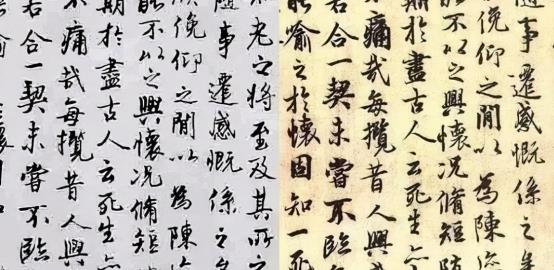 老之將至及其所之
隨事遷感慨係之
俛仰之閒以為陳迹
不以之興懷況脩短
期於盡古人云死生亦
痛哉每攬昔人興
若合一契未嘗不臨
隨事遷感慨係之
俛仰之閒以為陳迹
不以之興懷況脩短
期於盡古人云死生亦
痛哉每攬昔人興
若合一契未嘗不臨
能喻之於懷固知一死